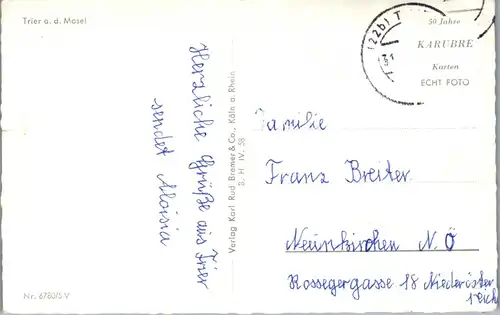 Trier a. d. Mosel
Herzliche Grüße aus Trier
sendet Aloisia
Verlag Karl Rud. Bremer & Co., Köln a. Rhein
3. H IV. 58
(22b) T
50 Jahre
KARUBRE
Karten
ECHT FOTO
Familie
Franz Breiter
Neunkirchen N. Ö
Rossegergasse 18 Niederöster
reich
Nr. 6780/S.V